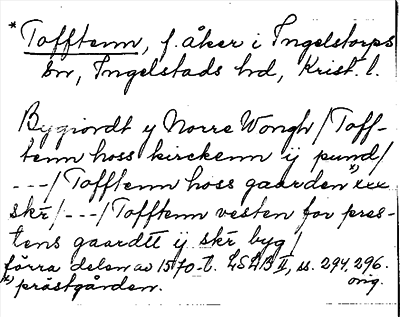 * Tofftenn, f. åker i Ingelstorps
sn, Ingelstads hd, Krist. l.
Bygiordt y Norre Wongh / Toff-
tenn hoss kirckenn ij pund /
---/ Tofftenn hoss gaarden x) xxx
skr /---/ Tofftenn vesten for pres-
tens gaardtt ij skr byg /
förra delen av 1570-t. LSAB II, ss. 294, 296.
x) prästgården. orig.